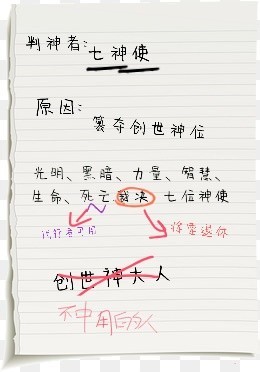 判神者：七神使
原因：
篡夺创世神位
光明、黑暗、力量、智慧、
生命、死亡、裁决 七位神使
创世神大人
不中用的人